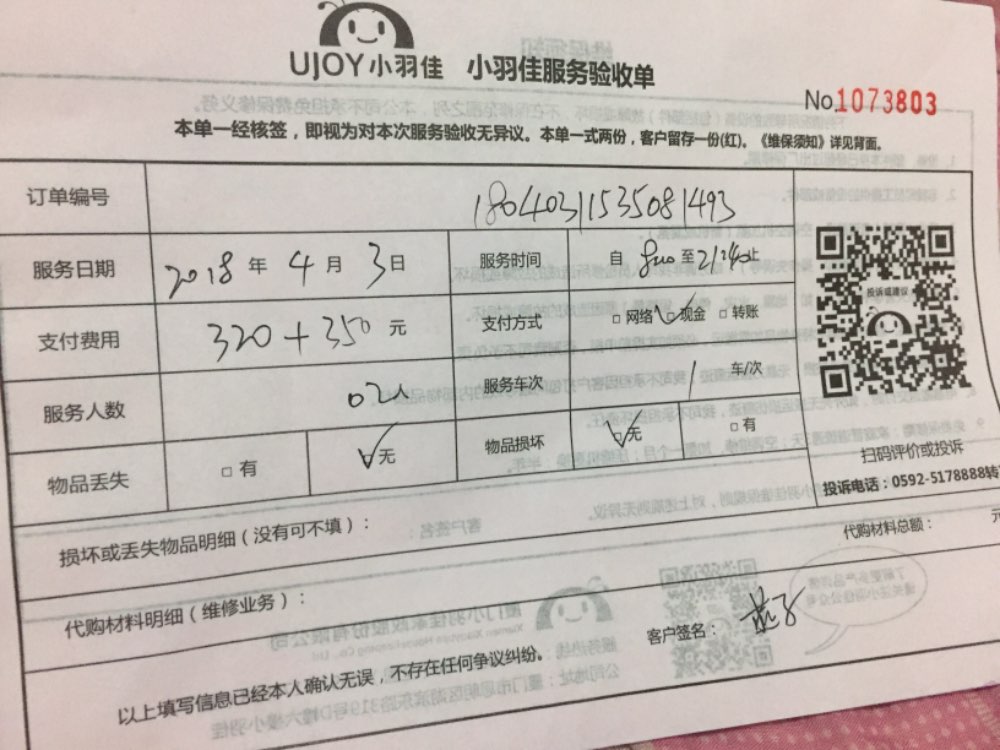 UJOY小羽佳 小羽佳服务验收单
No.1073803
本单一经核签，即视为对本次服务验收无异议。本单一式两份，客户留存一份(红)。《维保须知》详见背面。
订单编号 18040311535081493
服务日期 2018 年 4 月 3 日 服务时间 自 至 止
支付费用 320+350 元 支付方式 □ 网络 ☑ 现金 □ 转账
服务人数 02人 服务车次 1 车/次
物品丢失 □ 有 ☑ 无 物品损坏 ☑ 无 □ 有
投诉或建议
扫码评价或投诉
投诉电话：0592-5178888转
损坏或丢失物品明细（没有可不填）：
代购材料总额： 元
代购材料明细（维修业务）：
客户签名：
以上填写信息已经本人确认无误，不存在任何争议纠纷。